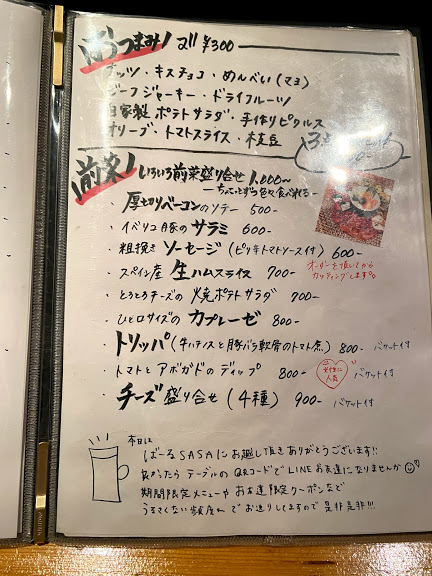 おつまみ! all ¥300
ナッツ・キスチョコ・めんべい(マヨ)
ビーフジャーキー・ドライフルーツ
自家製ポテトサラダ・手作りピクルス
オリーブ・トマトスライス・枝豆
前菜!
いろいろ前菜盛り合せ 1,000~
ーちょっとずつ色々食べれるー
厚切りベーコンのソテー 500-
・イベリコ豚のサラミ 600-
・粗挽きソーセージ(ピリ辛トマトソース付) 600-
・スペイン産 生ハムスライス 700-
オーダーを頂いてから
カッティングします
・とろとろチーズの焼ポテトサラダ 700-
・ひと口サイズのカプレーゼ 800-
・トリッパ(牛ハチノスと豚バラ軟骨のトマト煮) 800- バケット付
・トマトとアボガドのディップ 800- 女性に人気 バケット付
・チーズ盛り合せ(4種) 900- バケット付
本日は
ばーるSASAにお越し頂きありがとうございます!!
良かったらテーブルのQRコードでLINEお友達になりませんか
期間限定メニューやお友達限定クーポンなど
うるさくない頻度でお送りしますので是非是非!!!